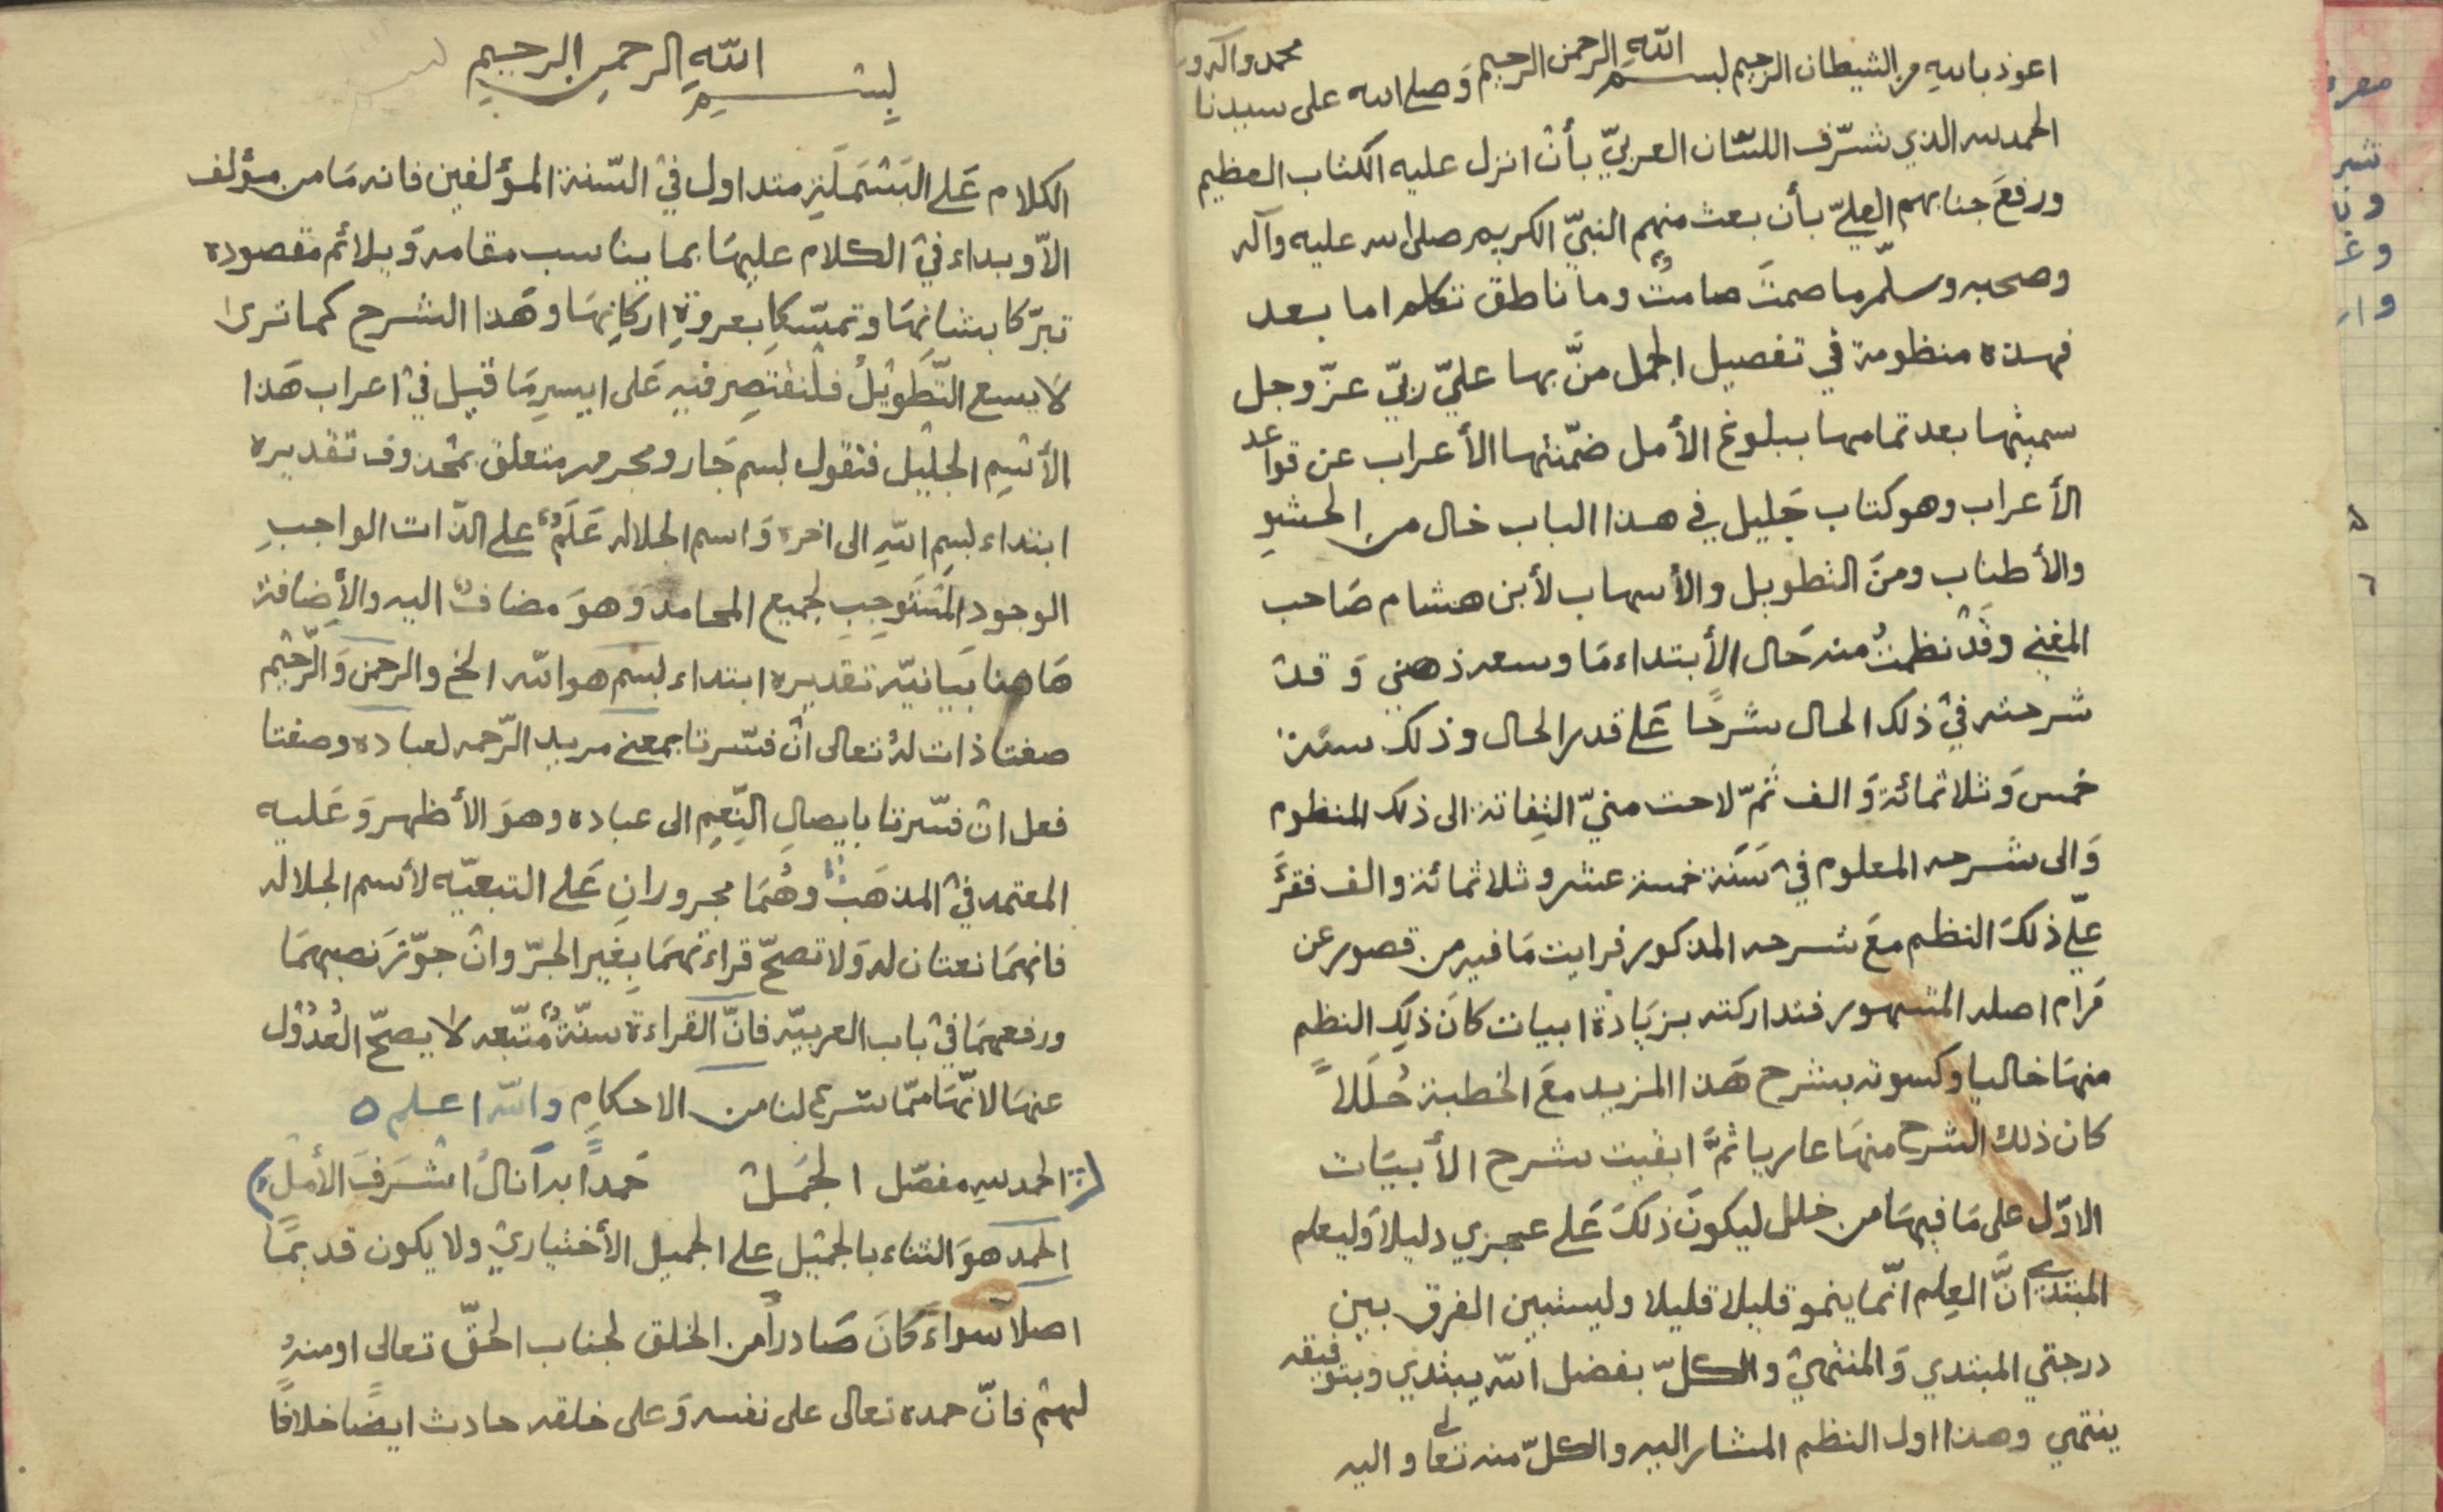 اعوذ بالله من الشيطان الرجيم بسم الله الرحمن الرحيم وَصلى الله على سيدنا محمد وآله و
الحمد لله الذي شرّف اللسَان العربيّ بأن انزل عليه الكتاب العظيم
ورفعَ جنابهم العليّ بأن بعث منهم النبيّ الكريم صلى الله عليه وآله
وصحبه وسلّم ما صمتَ صامتٌ وما ناطق تكلم اما بعد
فهذه منظومة في تفصيل الجمل منَّ بها عليّ ربيّ عزّ وجل
سميتها بعد تمامها ببلوغ الأمل ضمّنتها الأعراب عن قواعد
الأعراب وهو كتاب جَليل في هذا الباب خال من الحشوِ
والأطناب ومنَ التطويل والأسهاب لأبن هشام صَاحب
المغني وقَدْ نظمتُ منه حَال الأبتداء مَا وسعه ذهني وَ قدْ
شرحته فيْ ذلك الحال شرحًا عَلى قدر الحال وذلك سنة
خمس وَثلاثمائة وَالف ثمّ لاحت منيّ التِفاتة الى ذلك المنظوم
وَالى شرحه المعلوم فيْ سَنَة خمسة عشر وثلاثمائة والف فقرَّ
عليّ ذلكَ النظم معَ شرحه المذكور فرايت مَا فيه من قصور عن
مَرام اصله المشهور فتداركته بزيَادة ابيات كانَ ذلِك النظم
منهَا خاليا وكسوته بشرح هَذا المزيد معَ الخطبة حُلَلاً
كان ذلك الشرح منهَا عاريا ثمَّ ابقيت شرح الأبيَات
الاوّل على مَا فيهَا من خلل ليكونَ ذلكَ عَلى عجزي دليلاً وَليعلم
المبتدي انَّ العِلم انّما ينمو قليلا قليلا وليستبين الفرق بين
درجتي المبتدي وَالمنتهيْ والكلّ بفضل الله يبتدي وبتوفيقه
ينتهي وهذا اول النظم المشار اليه والكلّ منه تعالى واليه
بسم اللهِ الرحمنِ الرحيمِ
الكلام عَلى البَسْمَلَةِ متداول فيْ السّنة المؤلفين فانه مَا من مؤلف
الاّ وبداء فيْ الكلام عليهَا بما يناسب مقامه وَيلائم مقصوده
تبرّكا بشانِهَا وتمسّكا بعروةِ اركانِهَا وهَذا الشرح كما ترى
لا يسع التّطويْلُ فلْنقتصِر فيهِ عَلى ايسرِ مَا قيل فيْ اعراب هَذا
الأسْم الجليْل فنقول بسم جَار ومجرور متعلق بمحذوف تقديره
ابتداء بسمِ اللهِ الى اخره وَاسم الجلاله عَلَمٌ على الذّات الواجبِ
الوجود المسْتَوجِبِ لجميع المحامد وَهوَ مضافٌ اليه والأِضافة
هَاهنا بيَانيّه تقديره ابتداء بسم هو الله الخ والرحمن وَالرّحيْم
صفتا ذات لهُ تعالى انْ فسّرتا بمعنى مريد الرّحمه لعباده وصفتا
فعل انْ فسّرتا بايصالِ النِّعِمِ الى عباده وهوَ الأظهر وَعَليه
المعتمد فيْ المذهَب وهُمَا مجرورانِ عَلى التبعيّه لأسم الجلاله
فانهمَا نعتان له وَلا تصحّ قراءتهمَا بِغَير الجرّ وانْ جوّزَ نصبهمَا
ورفعهمَا فيْ باب العربيّه فانَّ القراءة سنّةٌ متّبعه لا يصحّ العُدُوْل
عنهَا لانّهَا ممّا شرع لنا من الاحكامِ وَالله اعلم ٥
(الحمد للهِ مفصّل الجُمَلْ حَمداً ابداً نالُ اشَرَفَ الأملْ)
الحمد هوَ الثناء بالجميْل على الجميل الأختياريْ ولا يكون قديمًا
اصلا سواءً كانَ صَادراً من الخلق لجناب الحقّ تعالى او منهُ
لهمْ فانّ حمده تعالى على نفسه وَعلى خلقه حادث ايضًا خلافًا